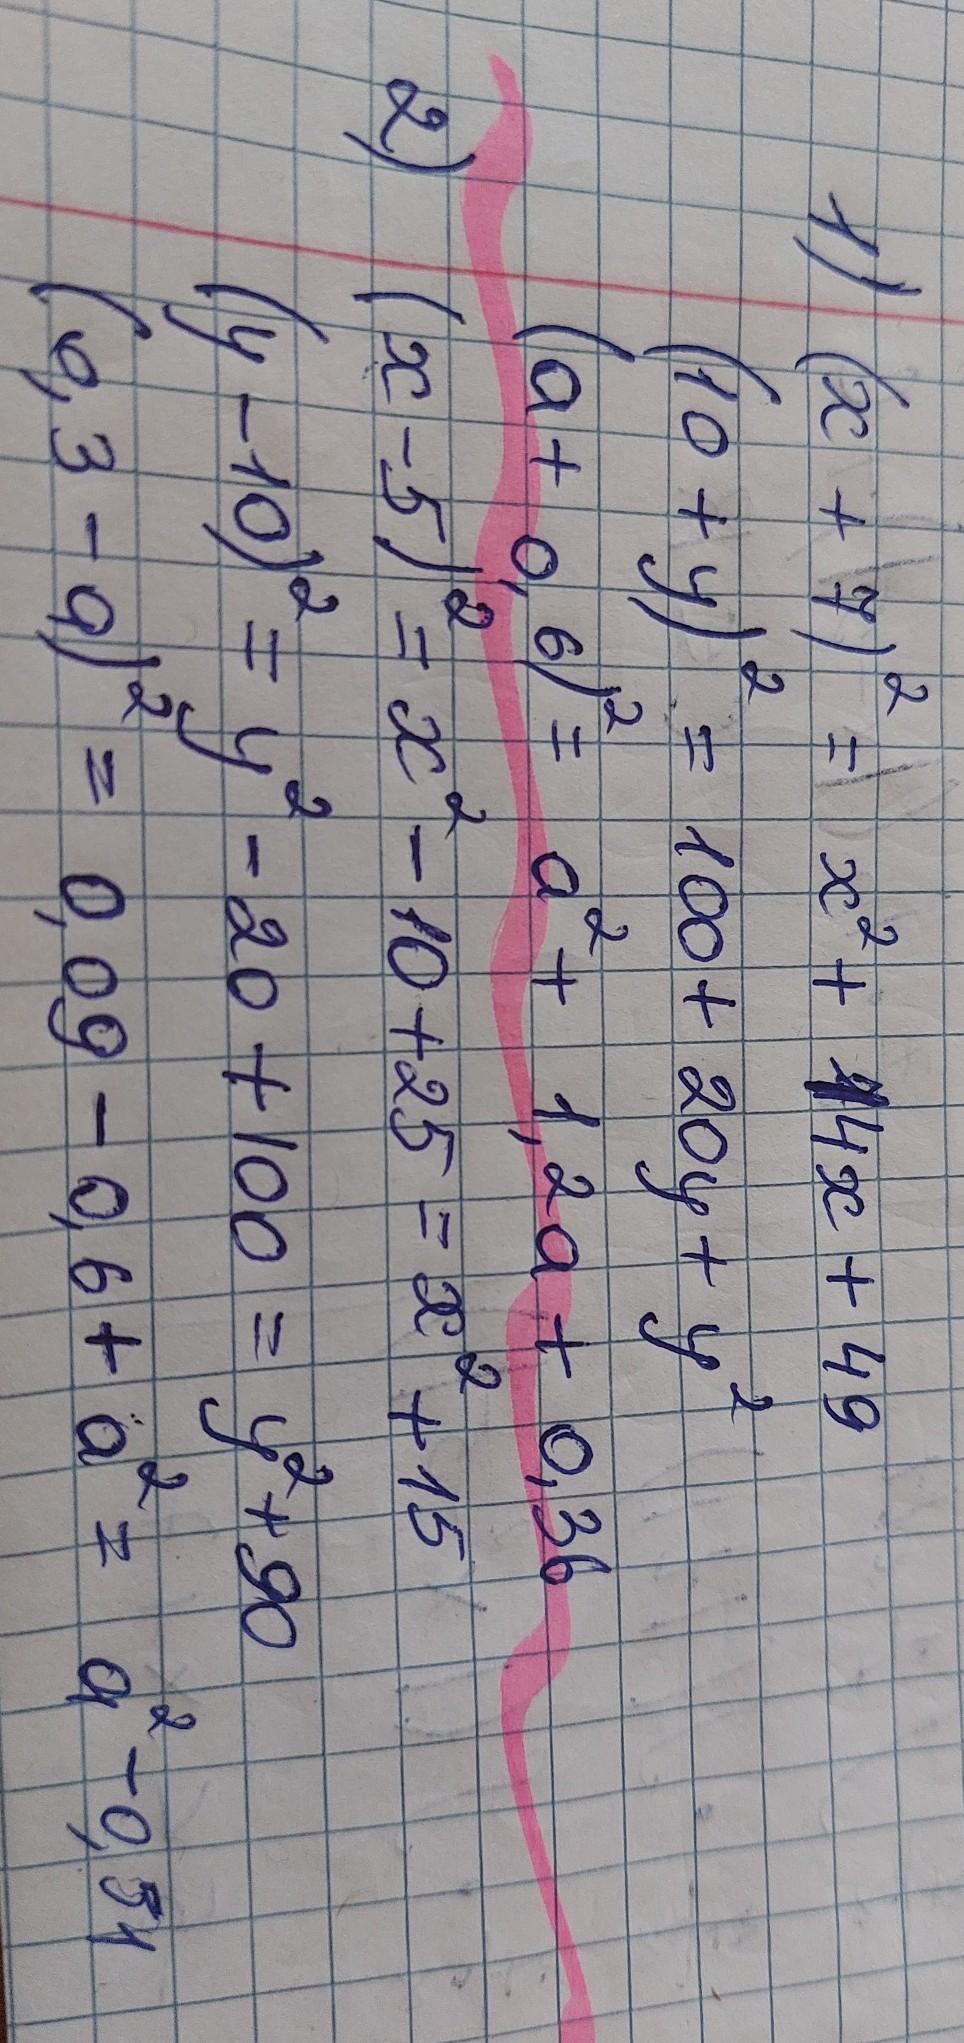 1) (x + 7)² = x² + 14x + 49
(10 + y)² = 100 + 20y + y²
(a + 0,6)² = a² + 1,2a + 0,36
2) (x - 5)² = x² - 10 + 25 = x² + 15
(y - 10)² = y² - 20 + 100 = y² + 90
(0,3 - a)² = 0,09 - 0,6 + a² = a² - 0,51